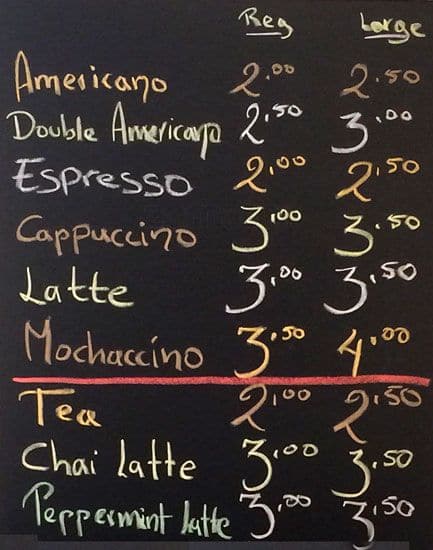 Reg Large
Americano 2.00 2.50
Double Americano 2.50 3.00
Espresso 2.00 2.50
Cappuccino 3.00 3.50
Latte 3.00 3.50
Mochaccino 3.50 4.00
Tea 2.00 2.50
Chai Latte 3.00 3.50
Peppermint Latte 3.00 3.50